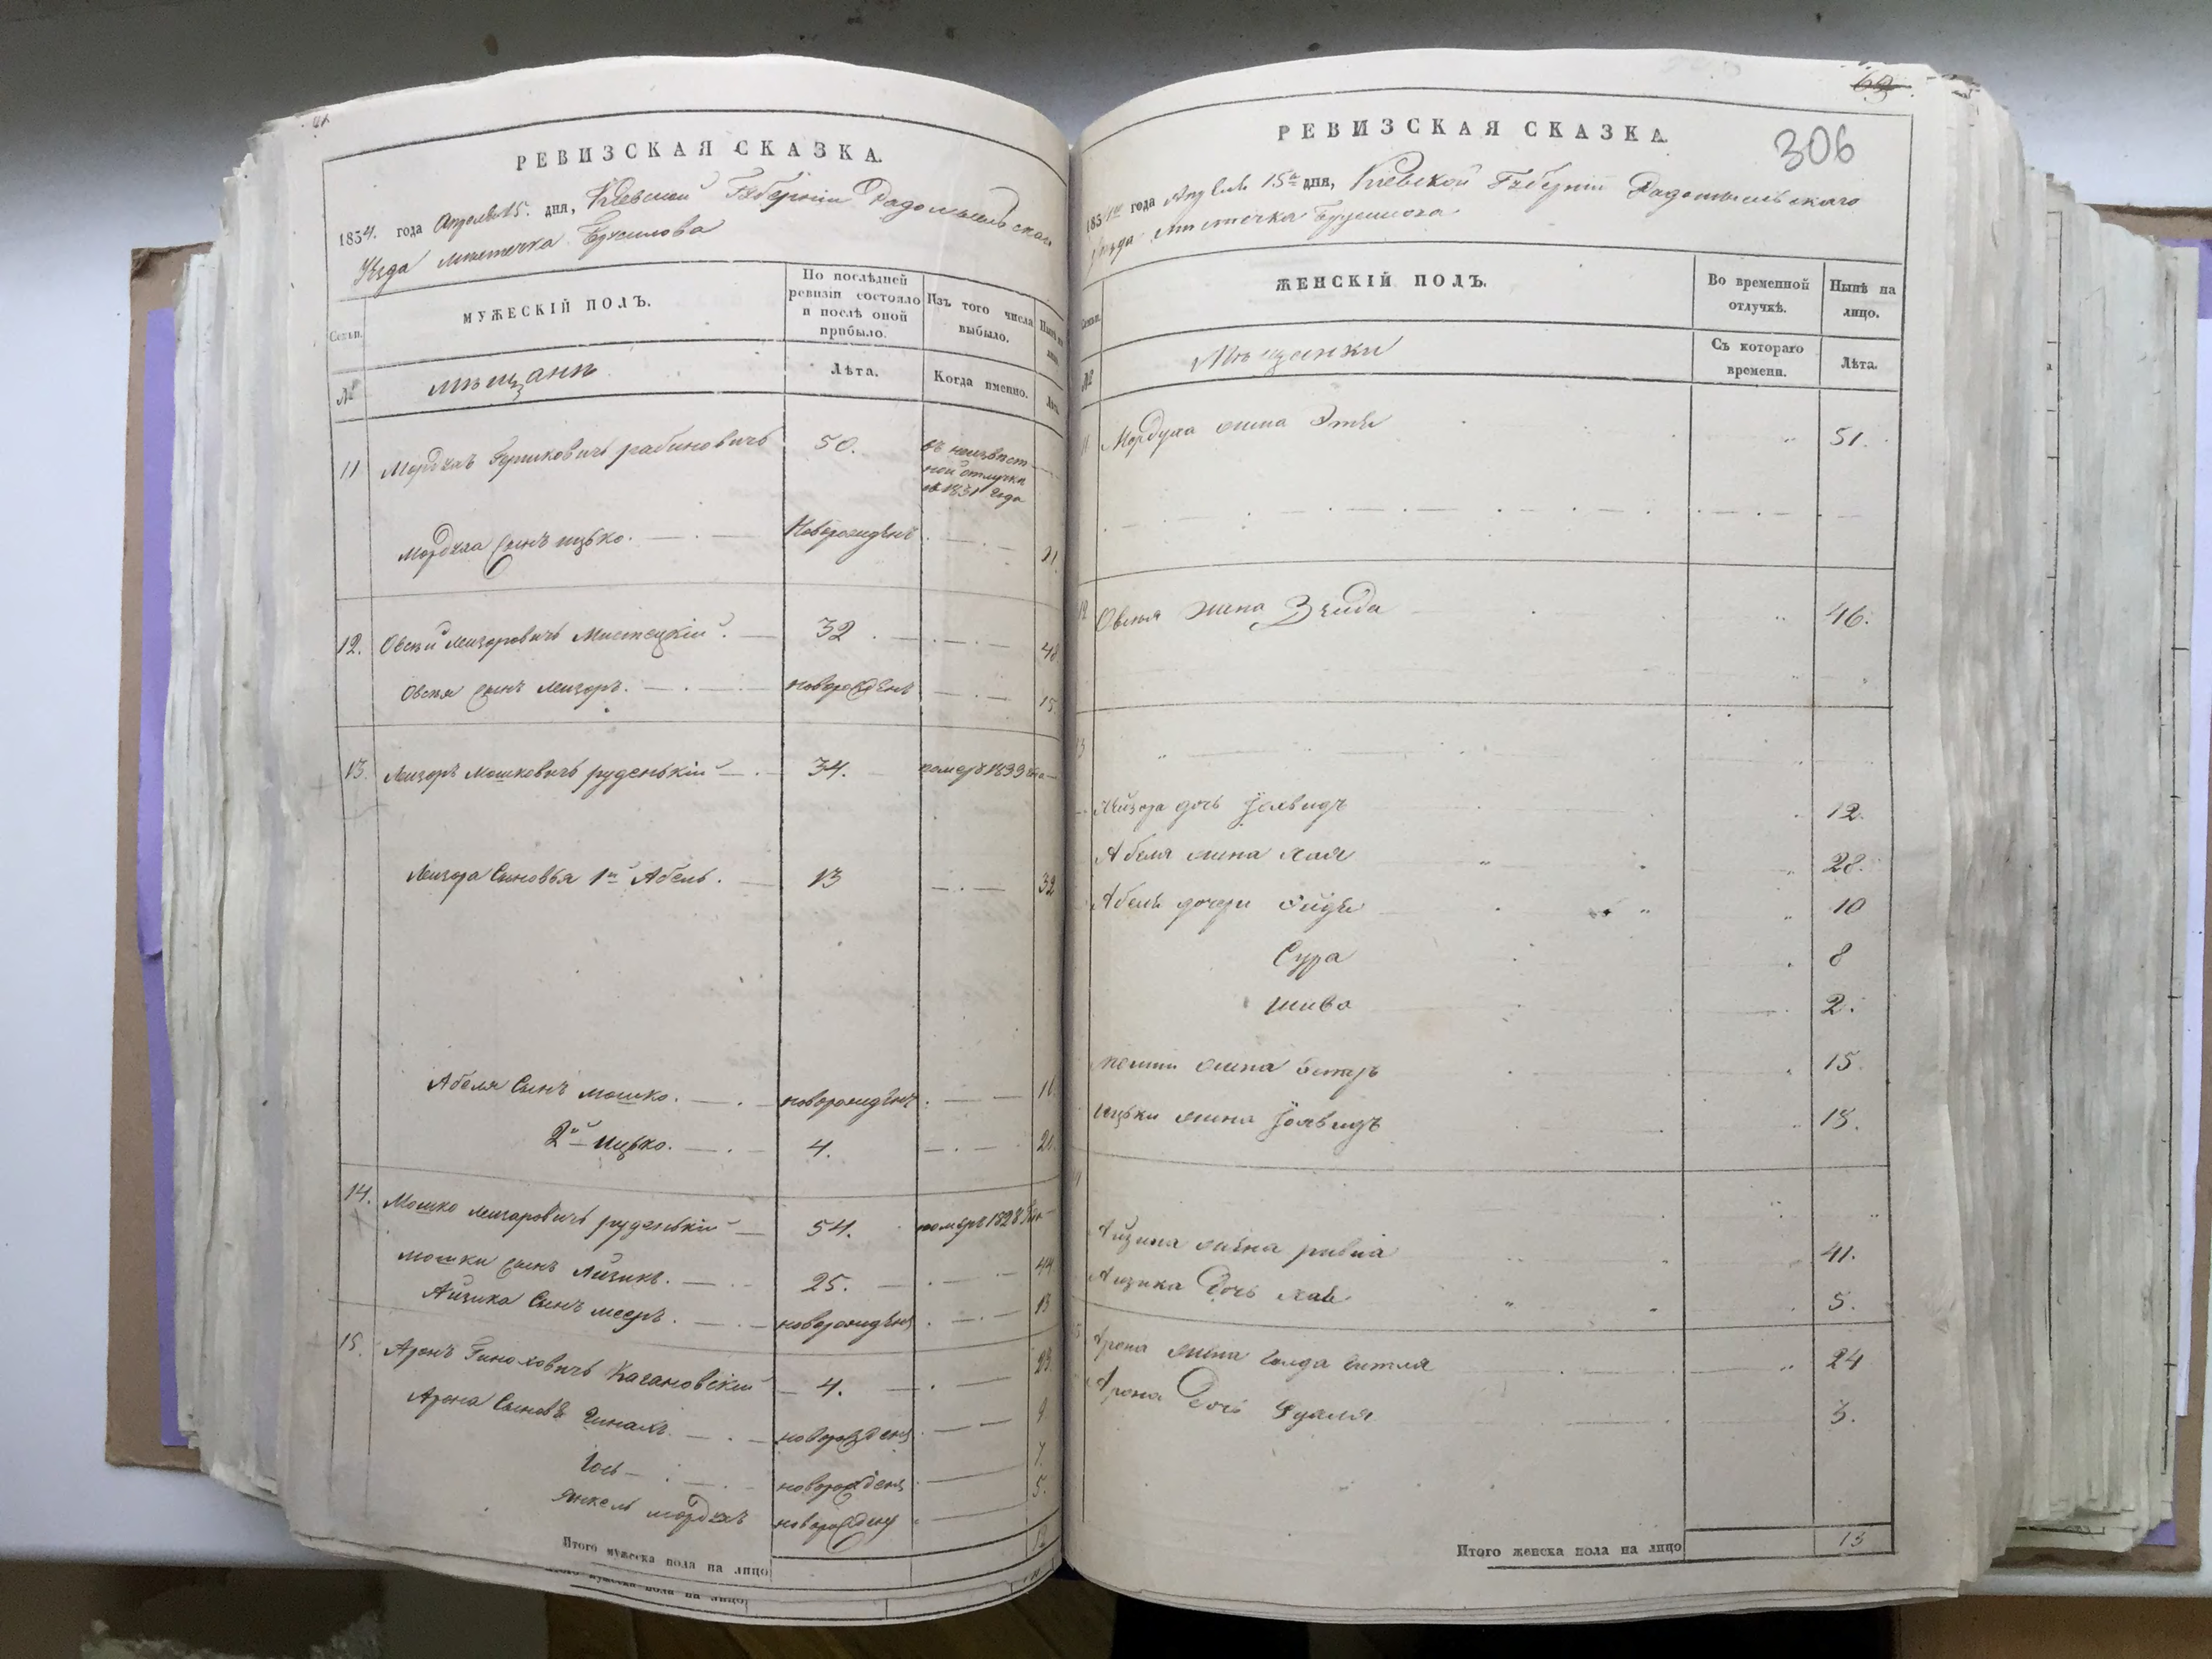 РЕВИЗСКАЯ СКАЗКА.
1834. года Апреля 15. дня, Киевской Губернии Радомысльскаго
Уезда местечка Брусилова
Семьи.
МУЖЕСКІЙ ПОЛЪ.
По послѣдней ревизіи состояло и послѣ оной прибыло.
Изъ того числа выбыло.
№
мѣщане
Лѣта.
Когда именно.
Лѣта.
11 Мордухъ Берковичъ рабиновичъ 50. въ неизвест
ной отлучке
1831 года
Мордуха Сынъ ицько. Новорожденъ 21.
12. Овсей Лейзоровичъ Мистецкій. 32 48
Овсея Сынъ Лейзоръ. новорожденъ 15
13. Лейзоръ Мошковичъ руденькій 34. померъ 1833
Лейзора Синовья 1й Абель. 13 32
Абеля Сынъ мошко. новорожденъ 11
2й Ицько. 4. 20.
14. Мошко лейзаровичъ руденькій 54. померъ 1828
мошки сынъ Айзикъ. 25. 44
Айзика Сынъ мееръ. новорожденъ 13
15. Аронъ Гиноховичъ Кагановскій 4. 23.
Арона Сыновъ Гинахъ. новорожденъ 9
Іось новорожденъ 7.
Янкель мордухъ новорожденъ 5.
Итого мужеска пола на лицо 12
мужеска пола на лицо
63
306
РЕВИЗСКАЯ СКАЗКА.
года Апреля 15го дня, Киевской Губерніи Радомысльскаго
Уезда местечка Брусилова
Семьи.
ЖЕНСКІЙ ПОЛЪ.
Во временной отлучкѣ.
Нынѣ на лицо.
№
Мещанки
Съ котораго времени.
Лѣта.
11 Мордуха жена Этя 51.
12 Овсея жена Зелда 46.
13
Лейзора дочь 12.
Абеля жена хая 28.
Абеля дочери 10
Сура 8
Шива 2.
жена Естеръ 15
Ицьки жена 18.
14
Айзика жена ривка 41.
Айзика дочь хая 5.
Арона жена Голда 24
Арона дочь 3.
Итого женска пола на лицо 13